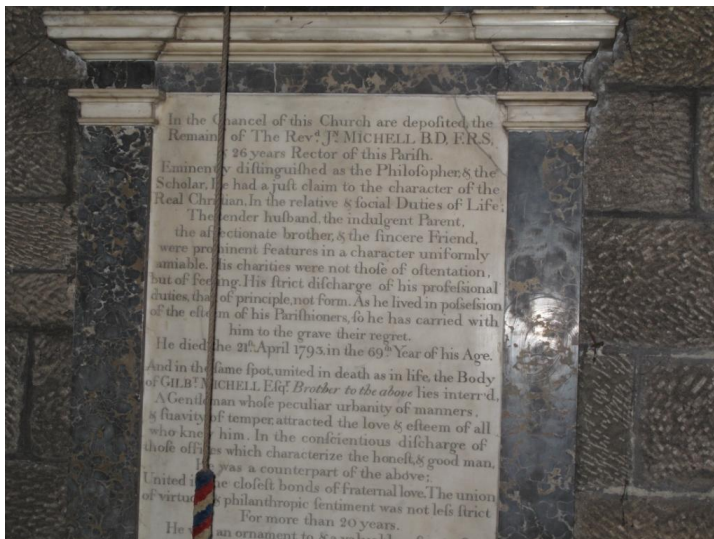 In the Chancel of this Church are depoſited, the
Remains of The Rev.ᵈ Jⁿ. MICHELL B.D. F.R.S.
& 26 years Rector of this Pariſh.
Eminently diſtinguiſhed as the Philoſopher, & the
Scholar, He had a juſt claim to the character of the
Real Chriſtian. In the relative & ſocial Duties of Life;
The tender huſband, the indulgent Parent,
the affectionate brother, & the ſincere Friend,
were prominent features in a character uniformly
amiable. His charities were not thoſe of oſtentation,
but of feeling. His ſtrict diſcharge of his profeſsional
duties, that of principle, not form. As he lived in poſseſsion
of the eſteem of his Pariſhioners, ſo he has carried with
him to the grave their regret.
He died the 21ˢᵗ. April 1793, in the 69ᵗʰ Year of his Age.
And in the ſame ſpot, united in death as in life, the Body
of GILBᵀ. MICHELL Eſqʳ. Brother to the above lies interr'd,
A Gentleman whoſe peculiar urbanity of manners,
& ſuavity of temper, attracted the love & eſteem of all
who knew him. In the conſcientious diſcharge of
thoſe offices which characterize the honeſt, & good man,
He was a counterpart of the above;
United in the cloſeſt bonds of fraternal love. The union
of virtuous & philanthropic ſentiment was not leſs ſtrict
For more than 20 years.
He was an ornament to &